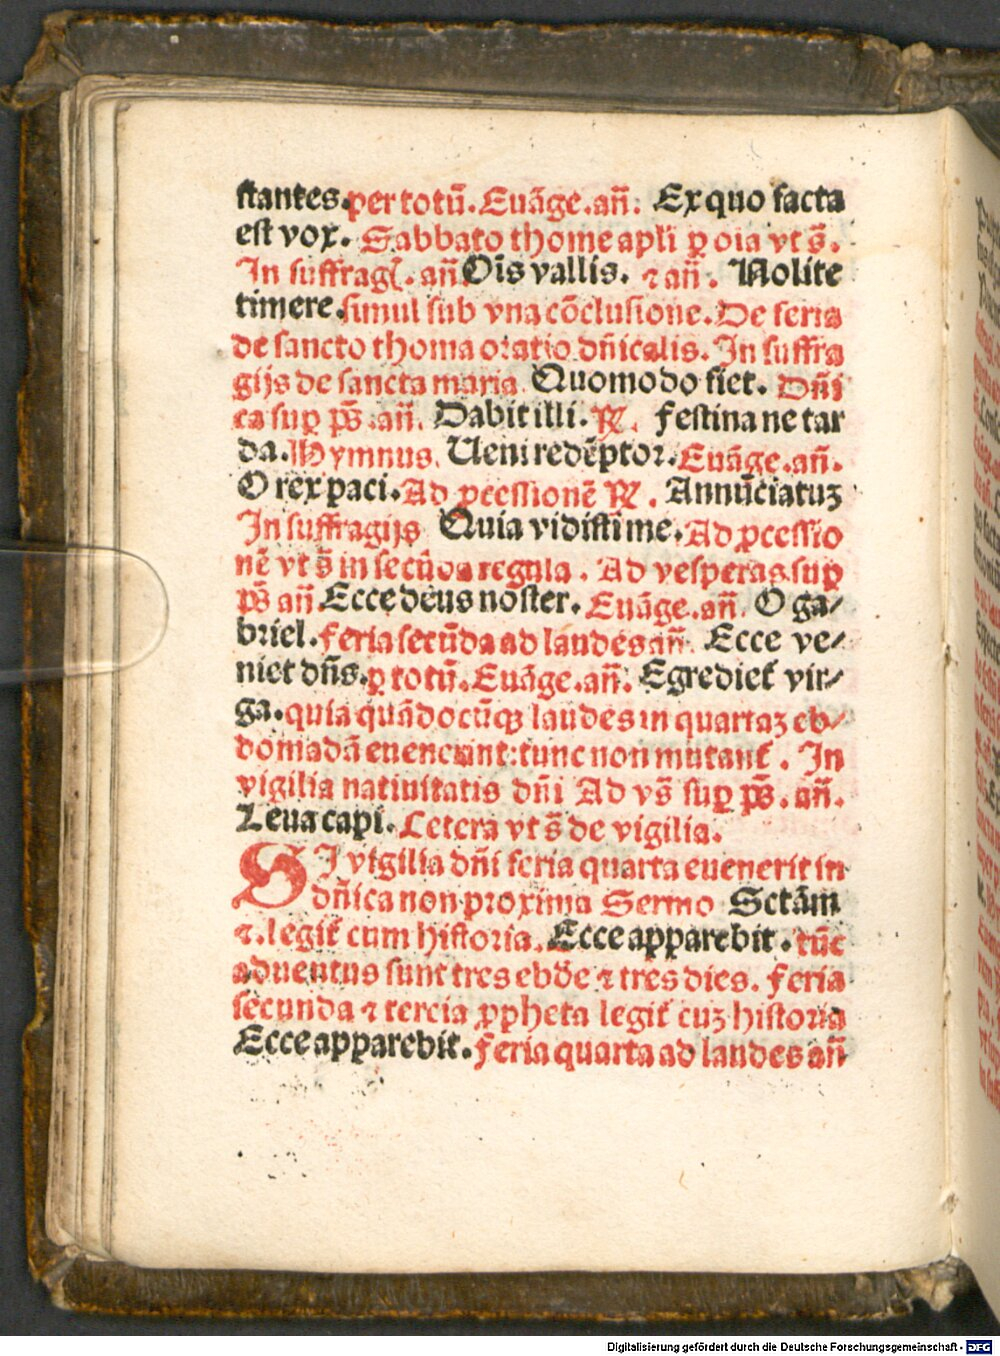 stantes. per totū. Euāge. añ. Ex quo facta
est vox. Sabbato thome apli ꝑ oīa vt s̄.
In suffrag. añ Oīs vallis. ⁊ añ. Nolite
timere. simul sub vna cōclusione. De feria
de sancto thoma oratio dñicalis. In suffra
gijs de sancta maria Quomodo fiet. Dñi
ca suꝑ ps̄. añ. Dabit illi. ℟. Festina ne tar
da. Hymnus. Ueni redēptor. Euāge. añ.
O rex paci. Ad ꝓcessionē ℟. Annūciatuꝫ
In suffragijs Quia vidisti me. Ad ꝓcessio
nē vt s̄ in secūda regula. Ad vesperas suꝑ
ps̄ añ Ecce deus noster. Euāge. añ. O ga/
briel. Feria secūda ad laudes añ Ecce ve/
niet dñs. ꝑ totū. Euāge. añ. Egrediet᷑ vir/
ga. quia quādocūqꝫ laudes in quartaꝫ eb/
domadā euenerint: tunc non mutant᷑. In
vigilia natiuitatis dñi Ad vs̄ suꝑ ps̄. añ.
Leua capi. Cetera vt s̄ de vigilia.
SI vigilia dñi feria quarta euenerit in
dñica non proxima Sermo Sctām
⁊. legit᷑ cum historia. Ecce apparebit. tūc
aduentus sunt tres ebde ⁊ tres dies. Feria
secunda ⁊ tercia ꝓpheta legit᷑ cuꝫ historia
Ecce apparebit. Feria quarta ad laudes añ
Digitalisierung gefördert durch die Deutsche Forschungsgemeinschaft - DFG